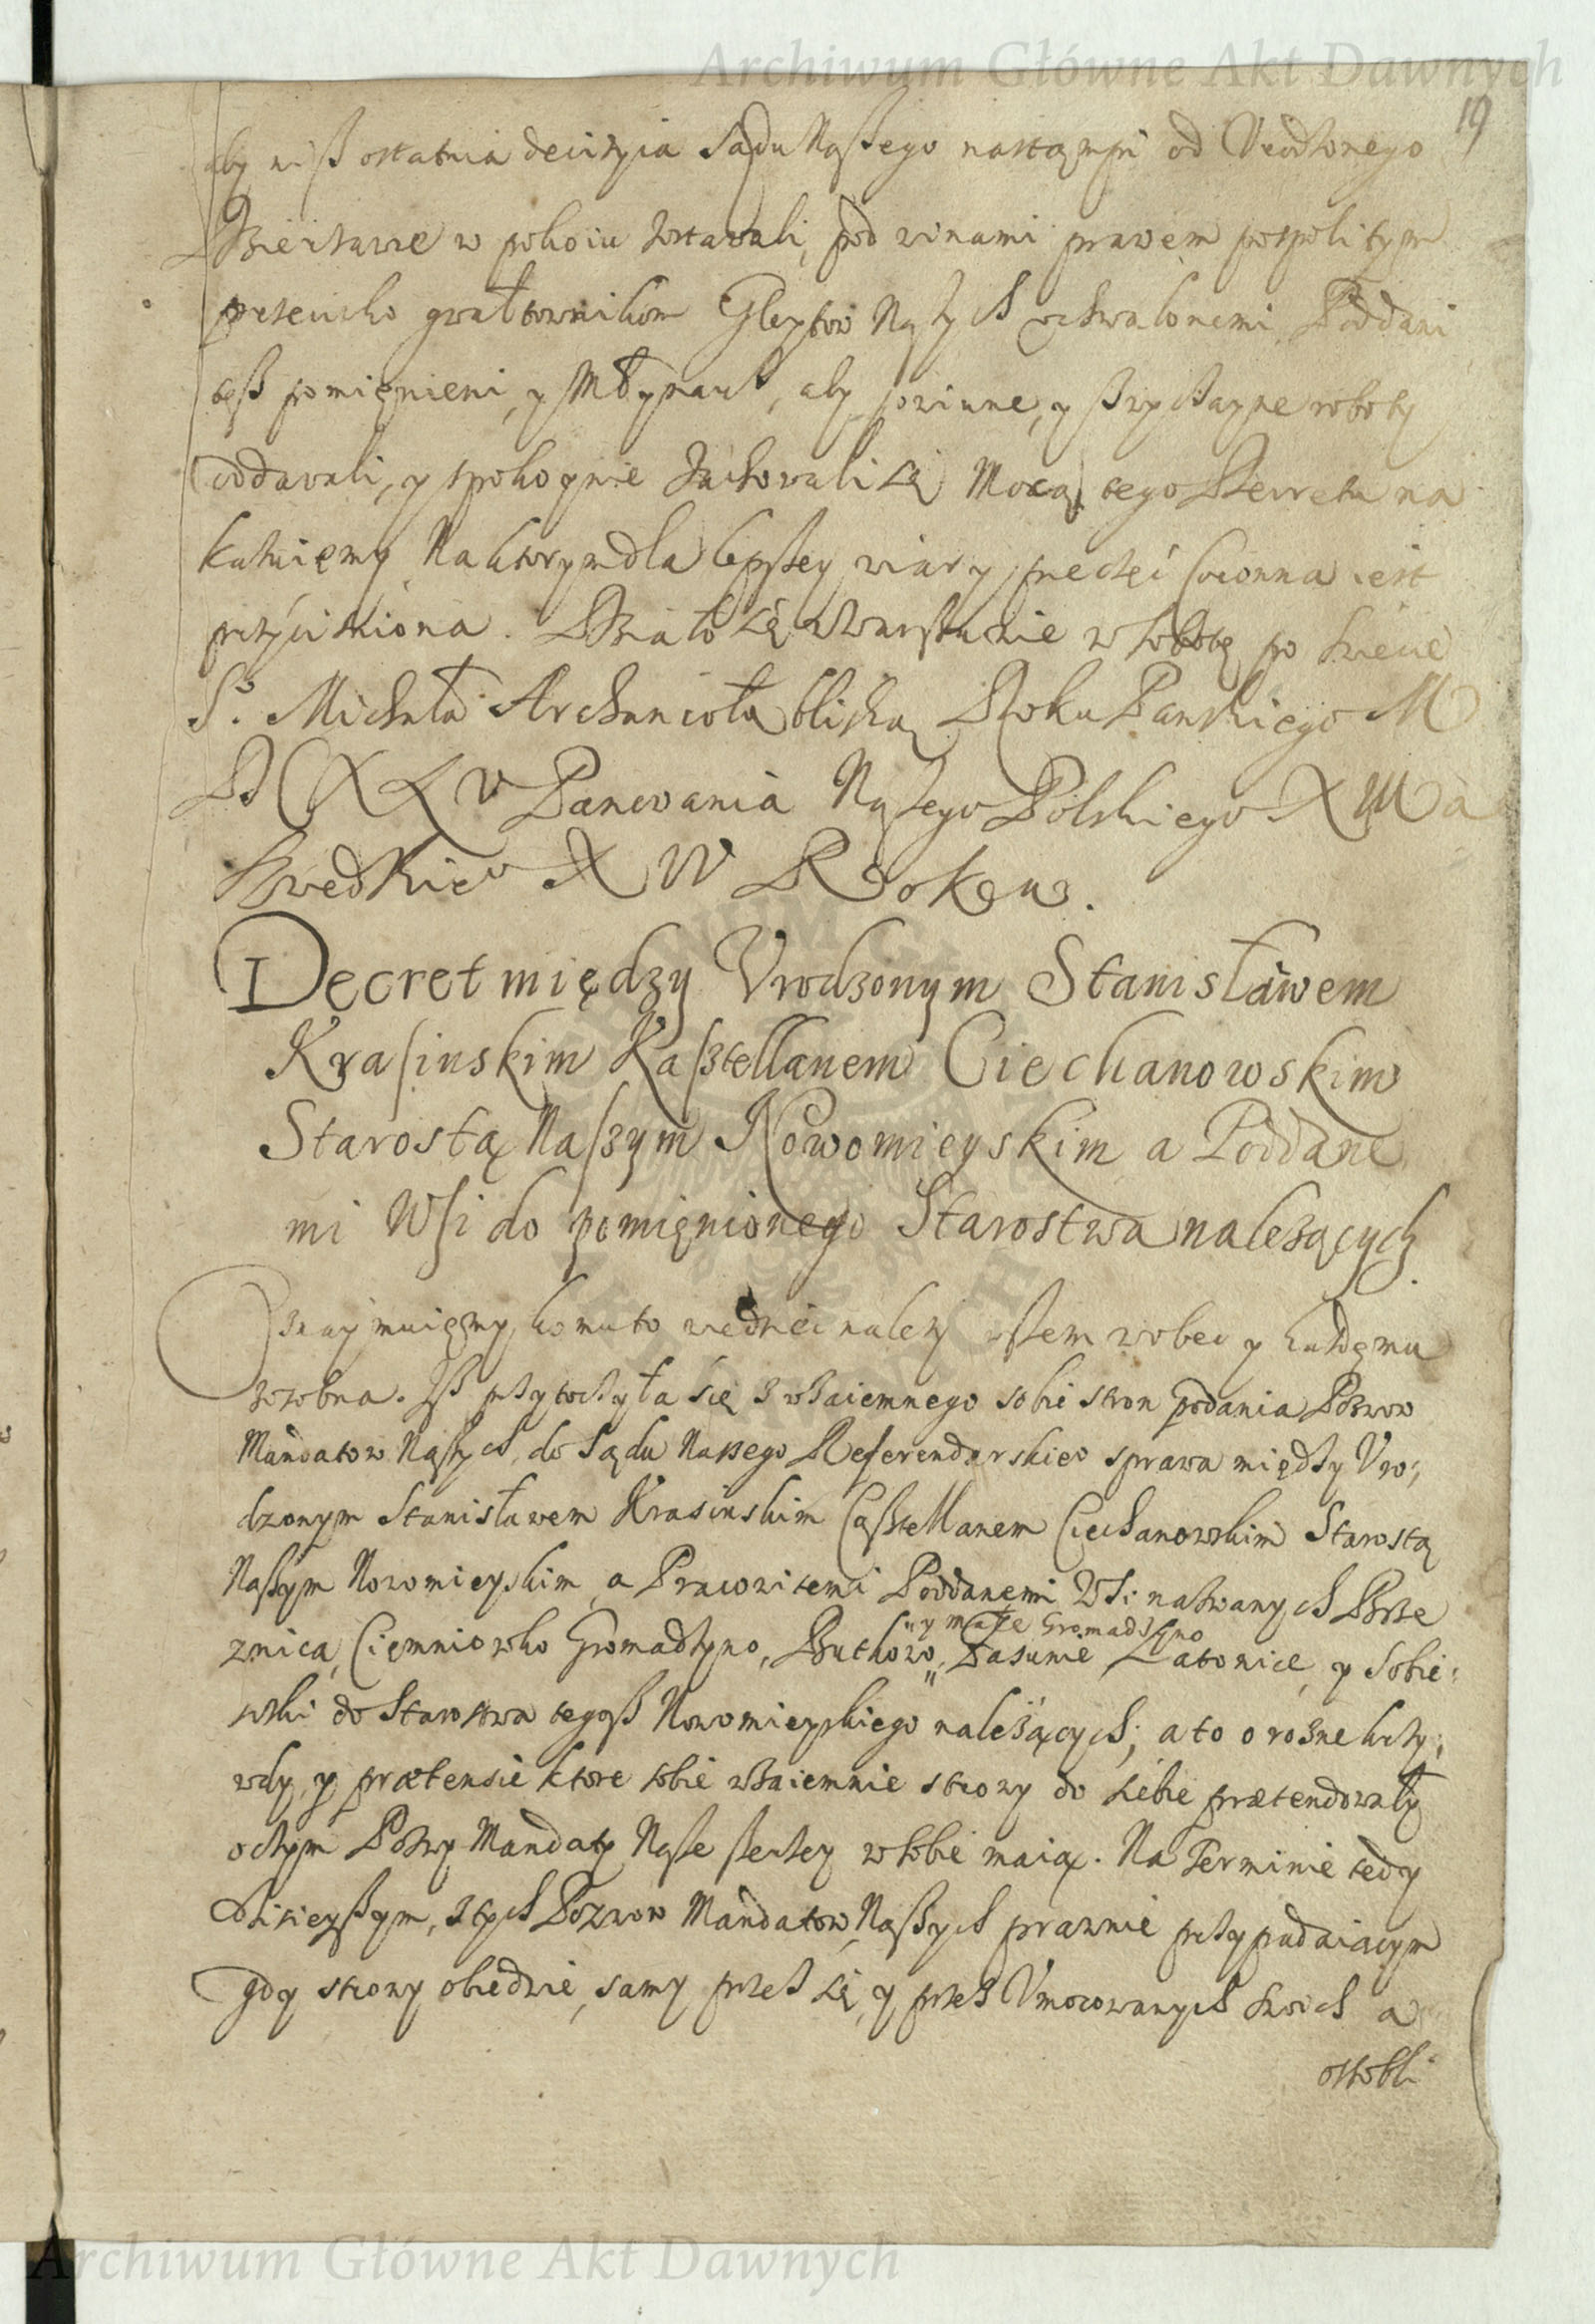 Archiwum Główne Akt Dawnych
19
aby niß ostatnia decizyia Sądu Naßego nastąmpi od Vrodzonego
Dzierzawce w pokoiu zostawali, pod winami prawem pospolitym
przeciwko gwałtownikom Gleytow Naszych vchwalonemi Poddani
teß pomięnieni, y Młynarz, aby powinne, y zwyczayne roboty
oddavali, y spokoynie zachowali się Mocą tego Decretu na
kazuięmy Na ktorym dla lepszey wiary pieczęć Coronna iest
przyciśniona. Działo się w Warszawie w Sobotę po Święcie
S°. Michała Archanioła bliską Roku Pańskiego M
DCXLV Panowania Naszego Polskiego XIII a
Szwedzkie° XIV Roku.
Decret między Vrodzonym Stanisławem
Krasinskim Kasztellanem Ciechanowskim
Starostą Naszym Nowomieyskim a Poddane
mi Wsi do pomięnionego Starostwa nalezących.
Oznaymuięmy komu to wiedzieć nalezy wszem wobec y kazdęmu
zosobna. Iß przytoczyła się z wzaiemnego sobie stron podania Pozwow
Mandatow Naszych, do Sądu Naszego Referendarskie° sprawa między Vro,
dzonym Stanisławem Krasinskim Casztellanem Ciechanowskim Starostą
Naszym Nowomieyskim, a Pracowitemi Poddanemi Wsi nazwanych Brze
"y małe Gromadzyno
znica, Ciemniowko Gromadzyno, Burkowo„ Łasunie Latonice, y Sobie:
wski do Starostwa tegoß Nowomieyskiego należących; a to o rozne krzy,
wdy, y prætensie ktore sobie wzaiemnie strony do siebie prætendowały
oczym Pozwy Mandaty Nasze szerzey w sobie maią. Na Terminie tedy
dzisieyszym, z tych Pozwow Mandatow Naszych prawnie przypadaiącym
gdy strony obiedwie, samy przez się, y przez Vmocowanych swoich a
osobli
Archiwum Główne Akt Dawnych